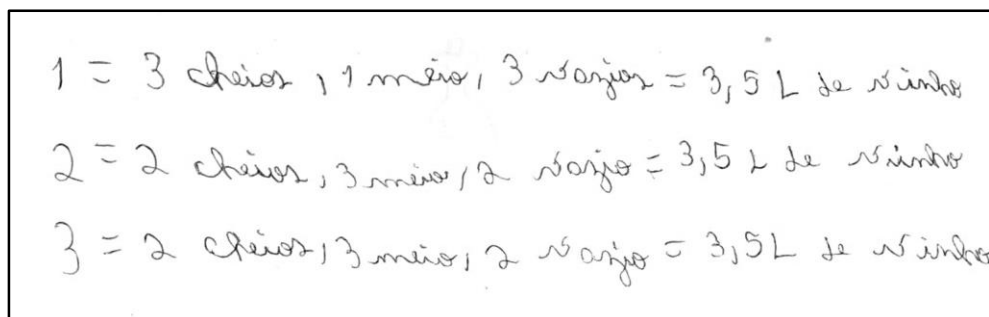 1 = 3 cheios, 1 meio, 3 vazios = 3,5 L de vinho
2 = 2 cheios, 3 meio, 2 vazio = 3,5 L de vinho
3 = 2 cheios, 3 meio, 2 vazio = 3,5 L de vinho